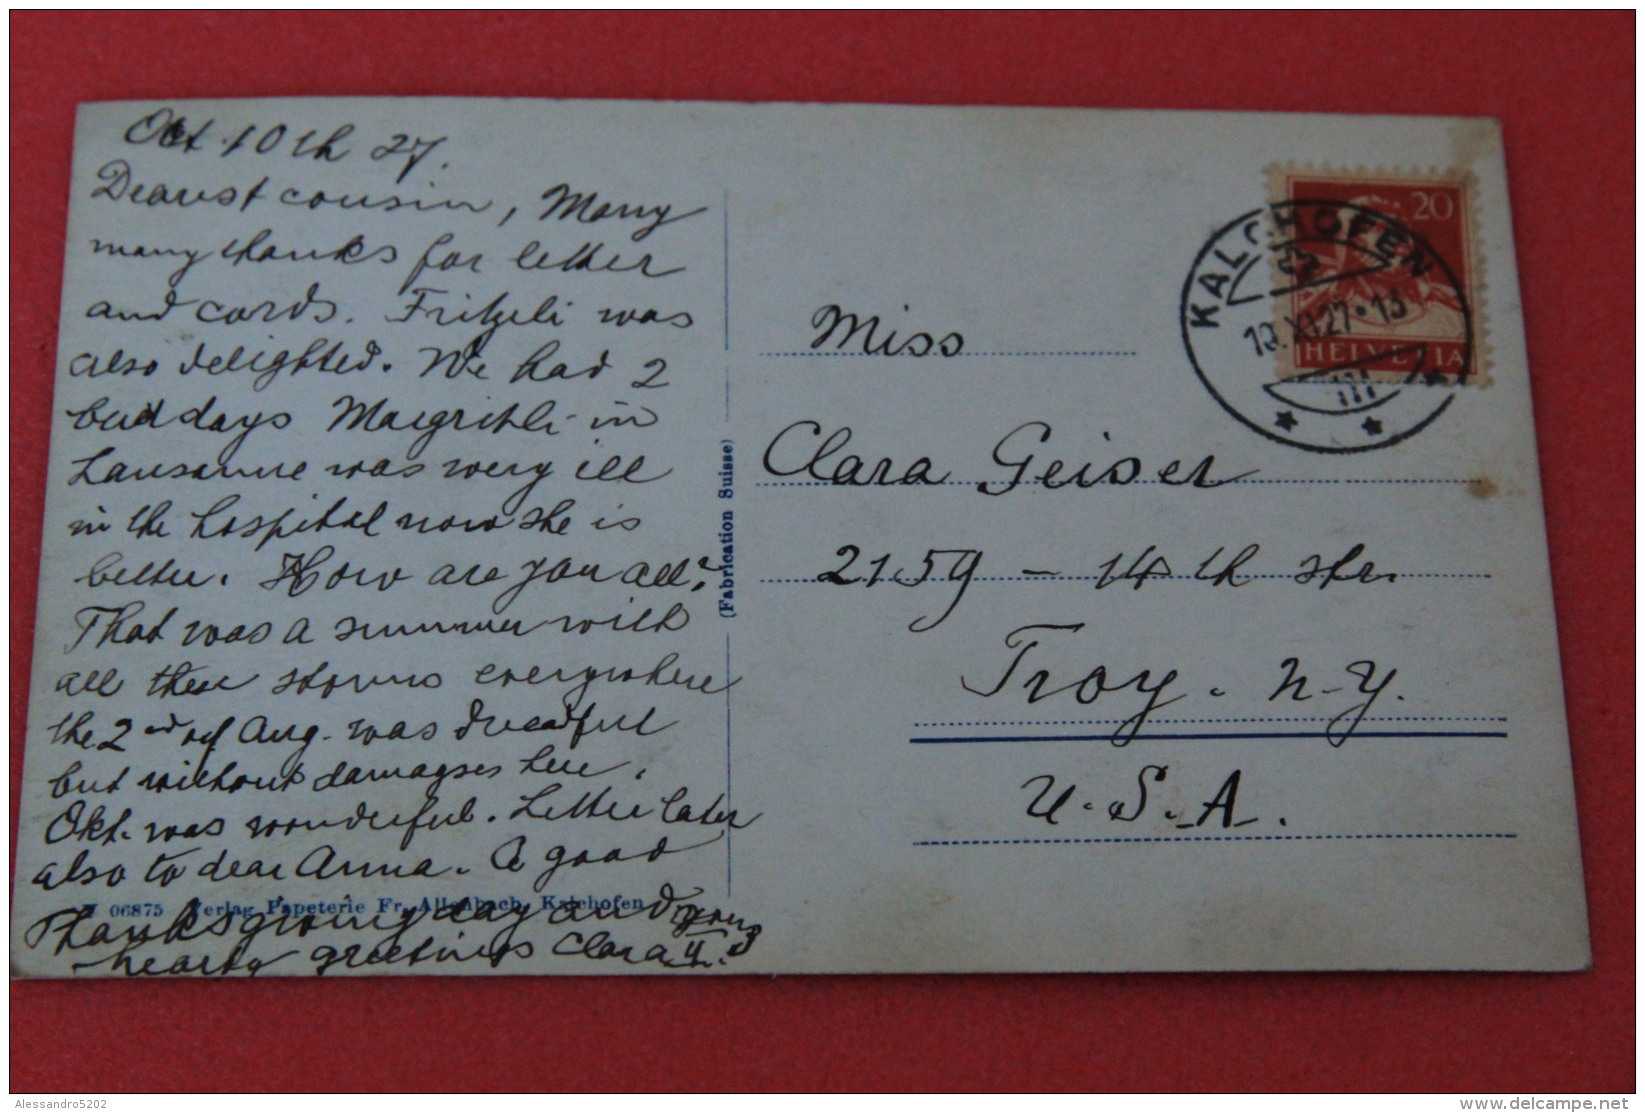 Oct. 10th 27.
Dearest cousin, Many
many thanks for letter
and cards. Fritzeli was
also delighted. We had 2
bad days Maegrithli in
Lausanne was wery ill
in the hospital now she is
better. How are you all?
That was a summer with
all these storms everywhere
the 2nd of Aug. was dreadful
but without damagses here.
Okt. was wonderful. Letter later
also to dear Anna. A good
Thanksgiving day and
hearty greetings Clara
H 06875 Verlag Papeterie Fr. Allenbach, Kalchofen
(Fabrication Suisse)
20
HELVETIA
KALCHOFEN
10.XI.27·13
Miss
Clara Geiser
2159 – 14th str.
Troy. N-Y.
U.S.A.
Alessandro5202
www.delcampe.net